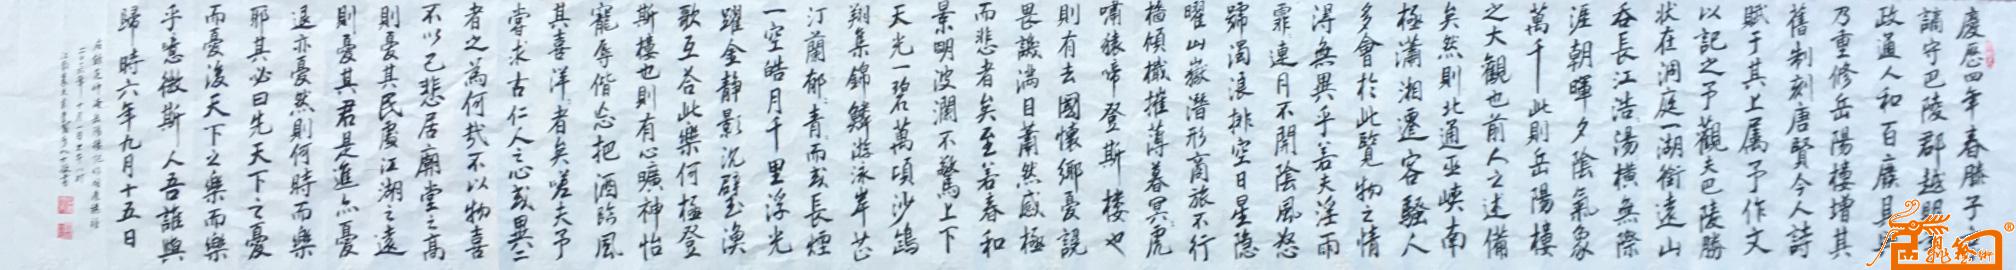 慶歷四年春滕子京
謫守巴陵郡越明
政通人和百廢具
乃重修岳陽樓增其
舊制刻唐賢今人詩
賦于其上属予作文
以記之予觀夫巴陵勝
狀在洞庭一湖銜遠山
吞長江浩湯橫無際
涯朝暉夕陰氣象
萬千此則岳陽樓
之大觀也前人之述備
矣然則北通巫峽南
極瀟湘遷客騷人
多會於此覽物之情
得無異乎若夫淫雨
霏連月不開陰風怒
號濁浪排空日星隱
曜山嶽潛形商旅不行
檣傾檝摧薄暮冥虎
嘯猿啼登斯樓也
則有去國懷鄉憂讒
畏譏滿目蕭然感極
而悲者矣至若春和
景明波瀾不驚上下
天光一碧萬頃沙鷗
翔集錦鱗游泳岸芷
汀蘭郁青而或長煙
一空皓月千里浮光
躍金静影沉璧漁
歌互答此樂何極登
斯樓也則有心曠神怡
寵辱偕忘把酒臨風
其喜洋者矣嗟夫予
嘗求古仁人之心或異二
者之為何哉不以物喜
不以己悲居廟堂之高
則憂其民處江湖之遠
則憂其君是進亦憂
退亦憂然則何時而樂
耶其必曰先天下之憂
而憂後天下之樂而樂
乎噫微斯人吾誰與
歸時六年九月十五日